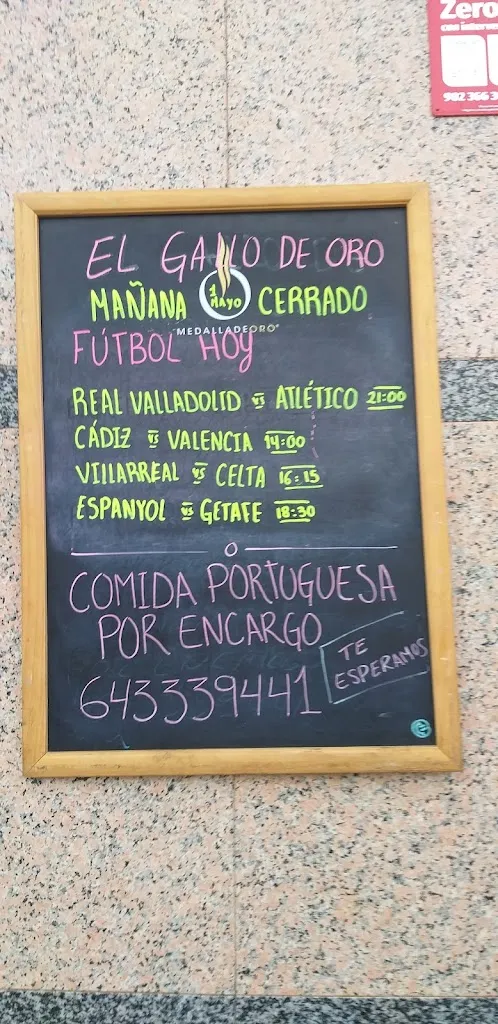 Zero
982 366 3
EL GALLO DE ORO
MAÑANA 1 MAYO CERRADO
MEDALLADEORO
FÚTBOL HOY
REAL VALLADOLID VS ATLÉTICO 21:00
CÁDIZ VS VALENCIA 14:00
VILLARREAL VS CELTA 16:15
ESPANYOL VS GETAFE 18:30
COMIDA PORTUGUESA
POR ENCARGO
643339441
TE
ESPERAMOS